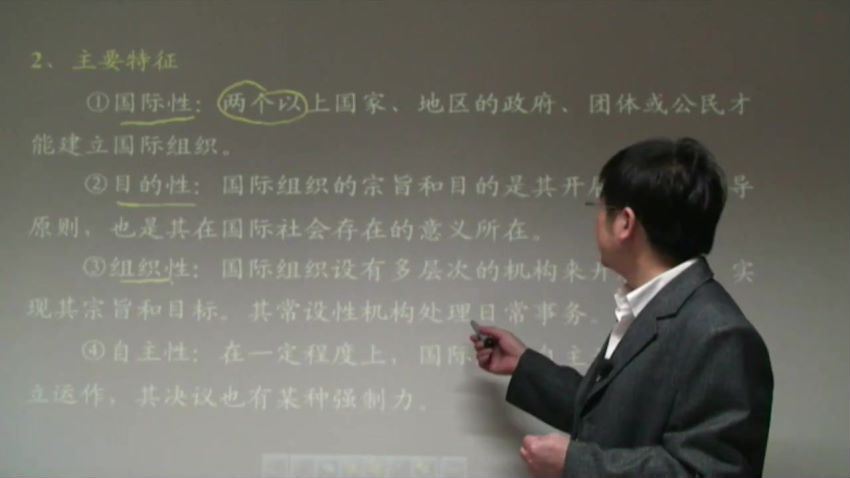 2、主要特征
①国际性：两个以上国家、地区的政府、团体或公民才
能建立国际组织。
②目的性：国际组织的宗旨和目的是其开 导
原则，也是其在国际社会存在的意义所在。
③组织性：国际组织设有多层次的机构来开 实
现其宗旨和目标。其常设性机构处理日常事务。
④自主性：在一定程度上，国际 自主
立运作，其决议也有某种强制力。